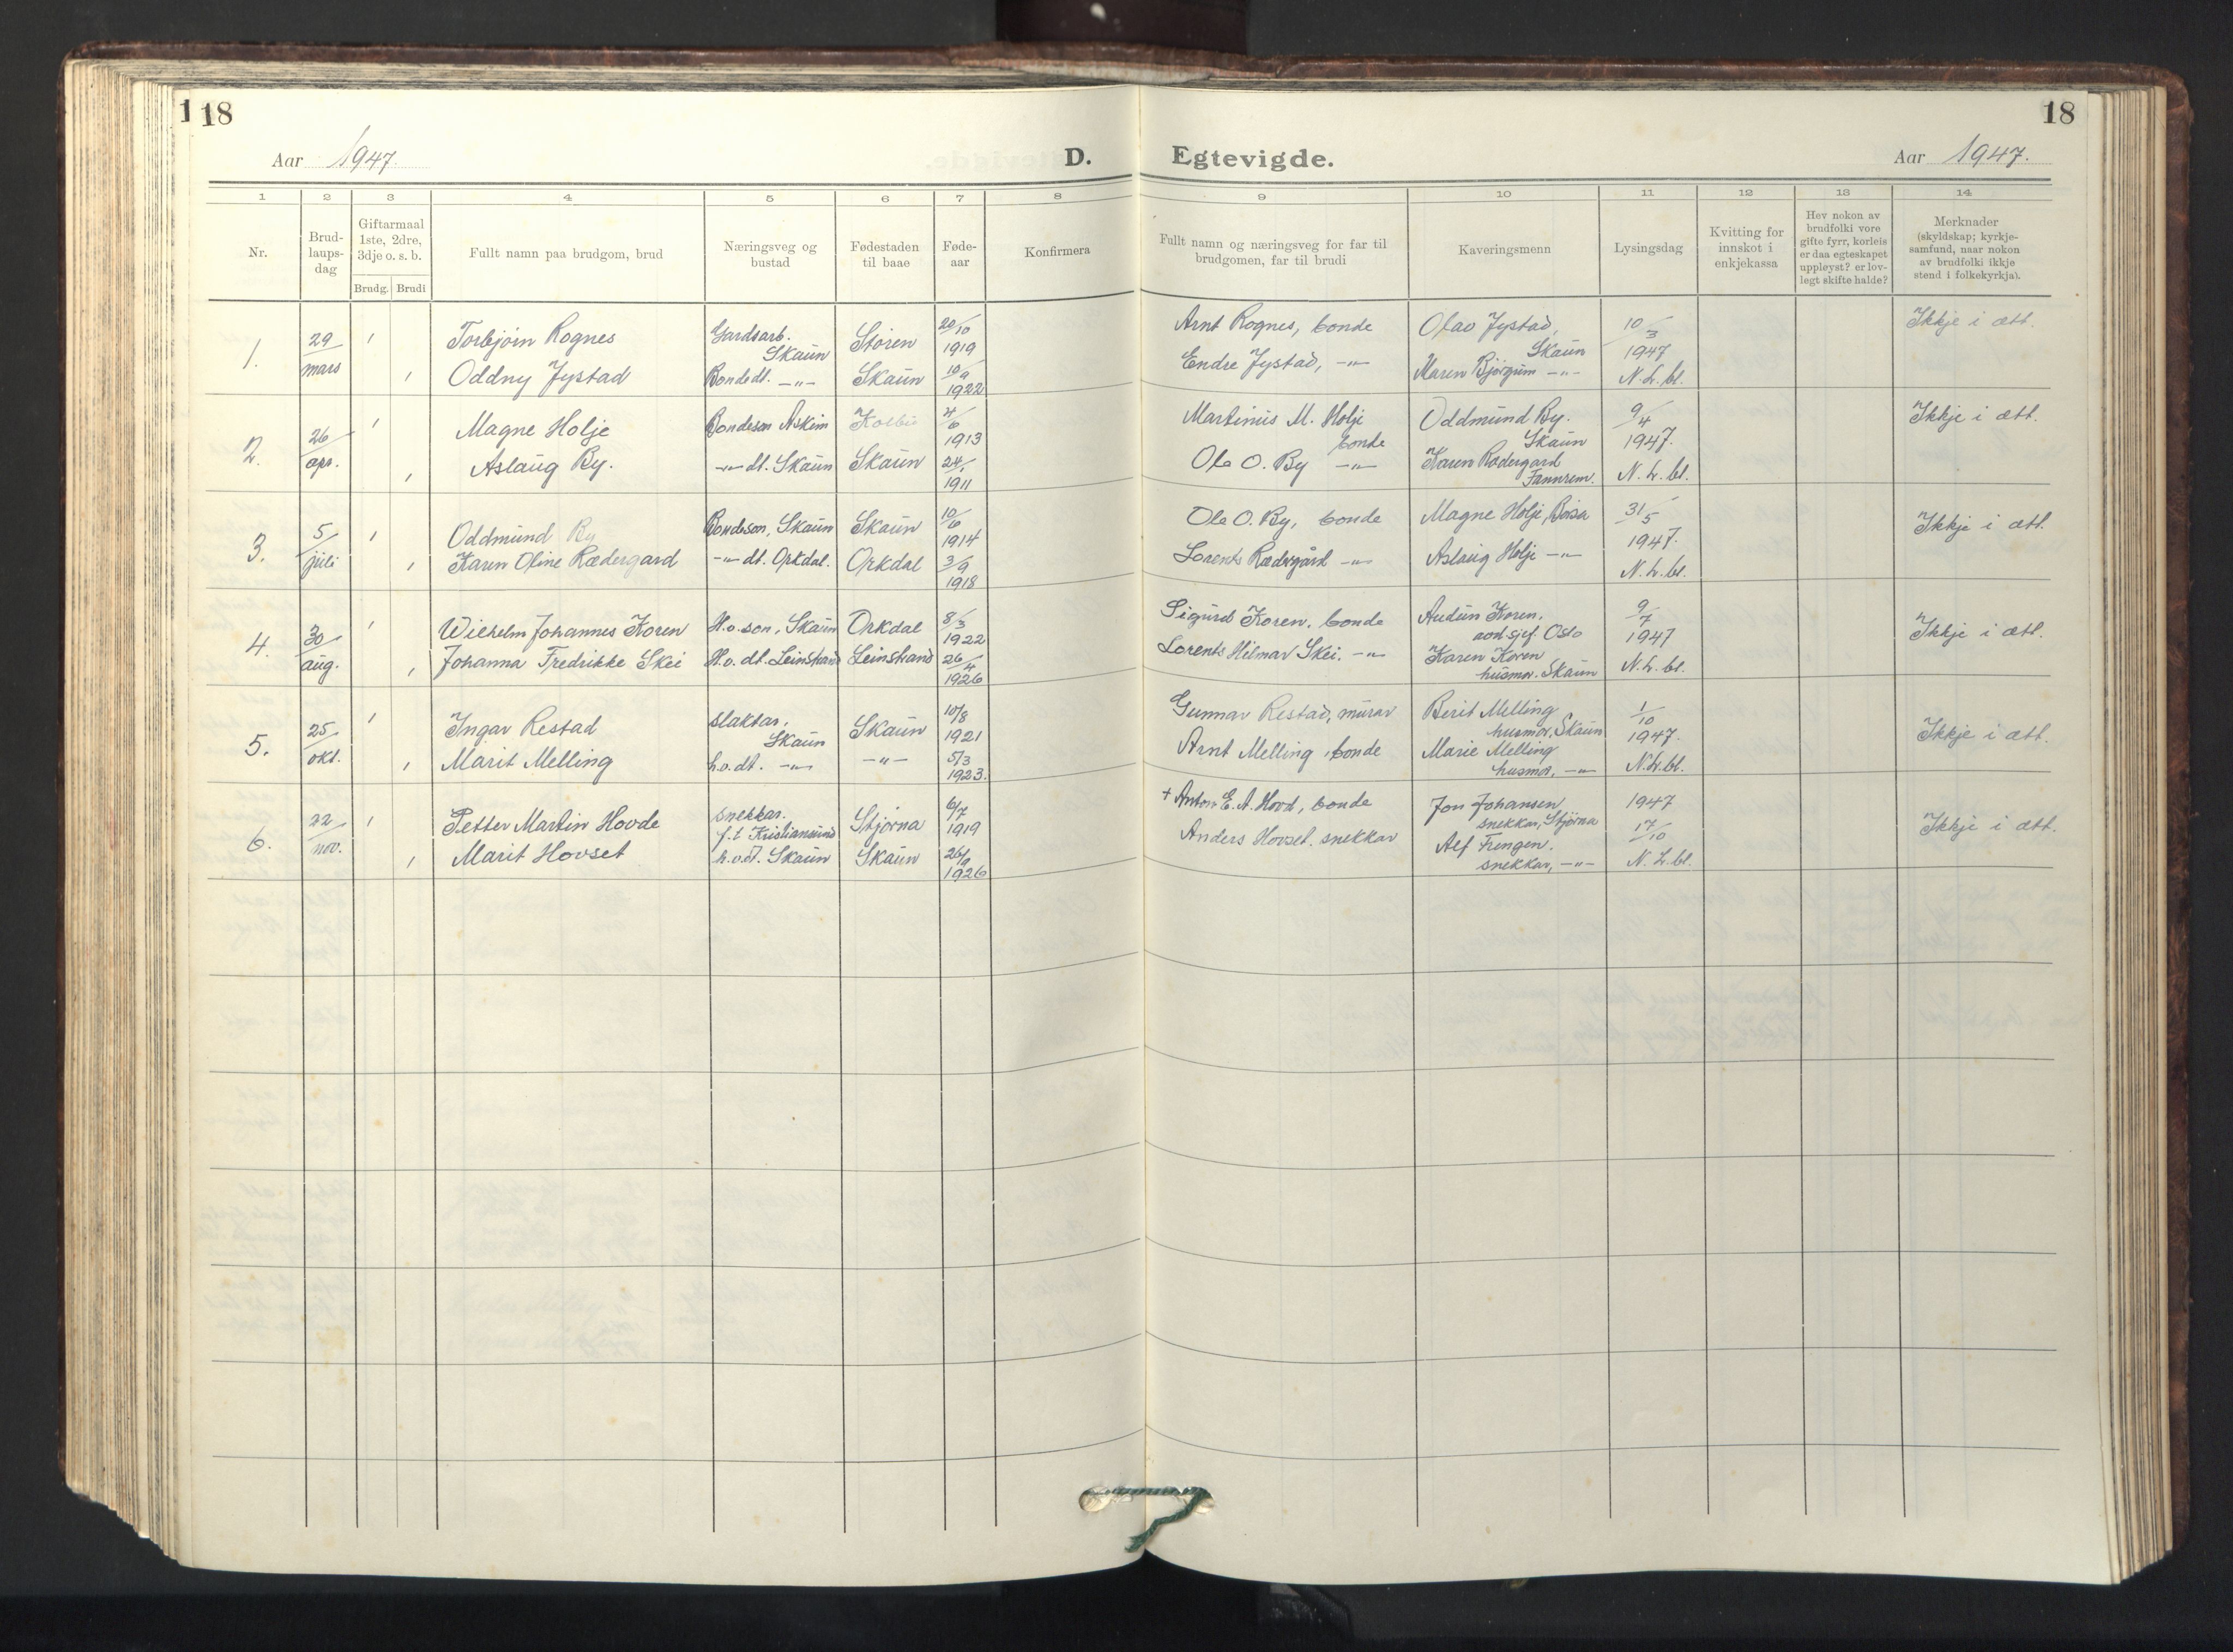 118
18
Aar 1947.
D. Egtevigde.
Aar 1947.
1 2 3 4 5 6 7 8 9 10 11 12 13 14
Nr.
Brud-
laups-
dag
Giftarmaal
1ste, 2dre,
3dje o. s. b.
Brudg. Brudi
Fullt namn paa brudgom, brud
Næringsveg og
bustad
Fødestaden
til baae
Føde-
aar
Konfirmera
Fullt namn og næringsveg for far til
brudgomen, far til brudi
Kaveringsmenn
Lysingsdag
Kvitting for
innskot i
enkjekassa
Hev nokon av
brudfolki vore
gifte fyrr, korleis
er daa egteskapet
uppløyst? er lov-
legt skifte halde?
Merknader
(skyldskap; kyrkje-
samfund, naar nokon
av brudfolki ikkje
stend i folkekyrkja).
1.
29/mars
1
Torbjørn Rognes
Gardsarb.
Skaun
Støren
20/10
1919
Arnt Rognes, bonde
Olav Jystad,
Skaun
10/3
1947
N.L.bl.
Ikkje i ætt.
1
Oddny Jystad
Bondedt. -"-
Skaun
10/9
1922
Endre Jystad, -"-
Maren Bjørgum -"-
2.
26/apr.
1
Magne Holje
Bondeson Askim
4/6
1913
Martinus M. Holje
bonde
Oddmund By.
Skaun
9/4
1947.
N.L.bl.
Ikkje i ætt.
1
Aslaug By.
-"- dt. Skaun
Skaun
24/1
1911
Ole O. By -"-
Karen Rødergard
Fannrem.
3.
5/juli
1
Oddmund By
Bondeson, Skaun
Skaun
10/6
1914
Ole O. By, bonde
Magne Holje, Børsa
31/5
1947.
N.L.bl.
Ikkje i ætt.
1
Karen Oline Rædergard
-"- dt. Orkdal.
Orkdal
3/9
1918
Lorents Rædergård -"-
Aslaug Holje -"-
4.
30/aug.
1
Wilhelm Johannes Koren
H.o.son, Skaun
Orkdal
8/3
1922
Sigurd Koren, bonde
Audun Koren,
Oslo
9/7
1947
N.L.bl.
Ikkje i ætt.
1
Johanna Fredrikke Skei
H.o. dt. Leinstrand
Leinstrand
26/4
1926
Lorents Hilmar Skei. -"-
Karen Koren
husmor. Skaun
5.
25/okt.
1
Ingar Restad
slaktar.
Skaun
Skaun
10/8
1921
Gunnar Restad, murar
Berit Melling
husmor, Skaun
1/10
1947.
N.L.bl.
Ikkje i ætt.
1
Marit Melling
h.o.dt. -"-
-"-
5/3
1923.
Arnt Melling, bonde
Marie Melling
husmor, -"-
6.
22/nov.
1
Petter Martin Hovde
snekkar.
f.t Kristiansund
Stjørna
6/7
1919
+ Anton E. A. Hovd, bonde
Jon Johansen
snekkar, Stjørna
1947
17/10
N.L.bl.
Ikkje i ætt.
1
Marit Hovset
h.o.d. Skaun
Skaun
26/9
1926
Anders Hovset. snekkar
Alf Frengen.
snekkar, -"-